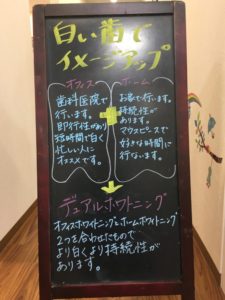 白い歯で
イメージアップ
オフィス
歯科医院で
行います。
即行性があり
短時間で白く
忙しい人に
オススメです。
ホーム
お家で行います。
持続性が
あります。
マウスピースで
好きな時間に
行ないます。
デュアルホワイトニング
オフィスホワイトニングとホームホワイトニング
2つを合わせたもので
より白くより持続性が
あります。